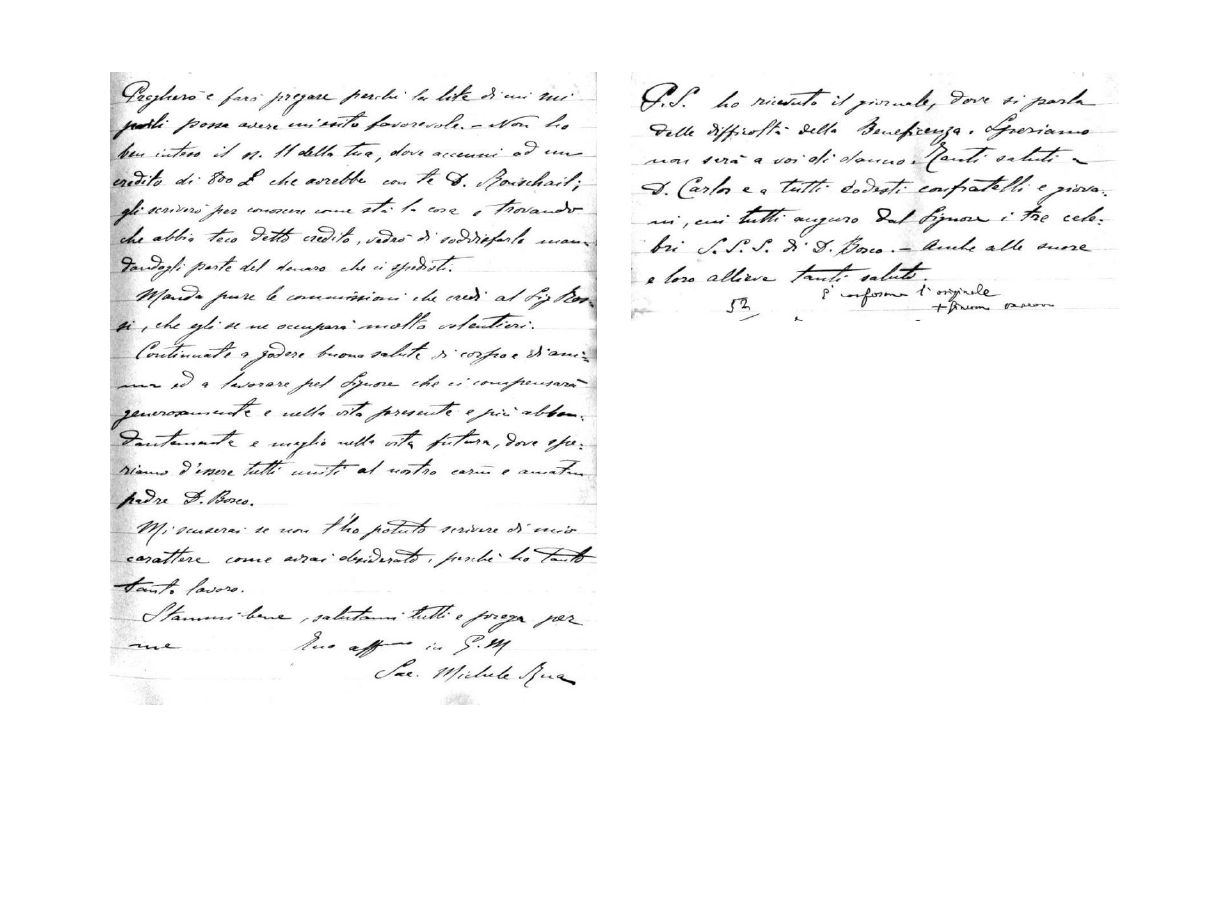 Pregherò e farò pregare perchè la lite di cui mi
parli possa avere un esito favorevole. - Non ho
ben inteso il n. 11 della tua, dove accenni ad un
credito di 800 £ che avrebbe con te D.
gli scriverò per conoscere come stà la cosa e trovando
che abbia teco detto credito, vedrò di soddisfarlo man-
dandogli parte del denaro che ci spedisti.
Manda pure le commissioni che credi al Sig Ros-
si, che egli se ne occuperà molto volentieri.
Continuate a godere buona salute di corpo e di ani-
ma ed a lavorare pel Signore che ci compenserà
generosamente e nella vita presente e più abbon-
dantemente e meglio nella vita futura, dove spe-
riamo d'essere tutti uniti al nostro caro e amato
padre D. Bosco.
Mi scuserai se non t'ho potuto scrivere di mio
carattere come avrai desiderato, perchè ho tanto
tanto lavoro.
Stammi bene, salutami tutti e prega per
me Tuo aff.mo in G. M
Sac. Michele Rua
P.S. ho ricevuto il giornale, dove si parla
delle difficoltà della Beneficenza. Speriamo
non sarà a voi di danno. Tanti saluti a
D. Carlos e a tutti codesti confratelli e giova-
ni, cui tutti auguro dal Signore i tre cele-
bri S. S. S. di D. Bosco. - Anche alle suore
e loro allieve tanti saluti.
È conforme l'originale
52 +